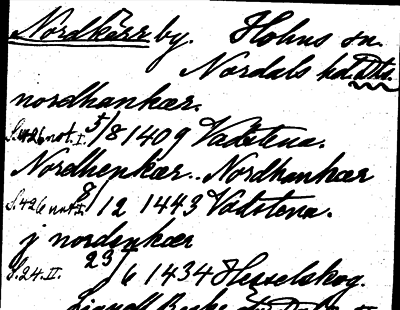 Nordkärr by. Holms sn.
Nordals hd. Dls.
nordhankær.
S. 426 not. I. 5/8 1409 Vadstena.
Nordhenkær.. Nordhankær
S. 426 not I. 8/12 1443 Vadstena.
j nordenkær
S. 24. II. 23/6 1434 Hesselskog.